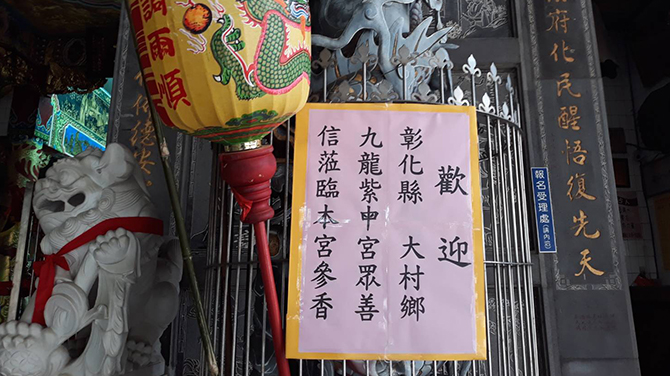 歡迎
彰化縣 大村鄉
九龍紫申宮眾善
信蒞臨本宮參香
調雨順
府化民醒悟復先天
報名受理處